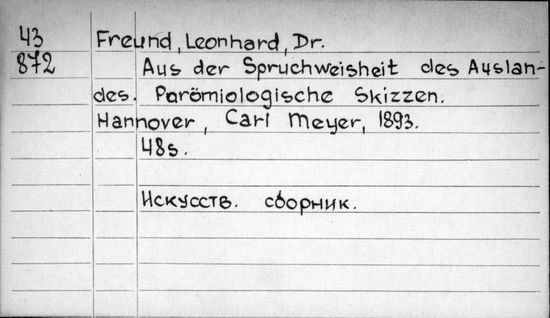 43 Freund, Leonhard, Dr.
872 Aus der Spruchweisheit des Auslan-
des. Parömiologische Skizzen.
Hannover, Carl Meyer, 1893.
48s.
Искусств. сборник.